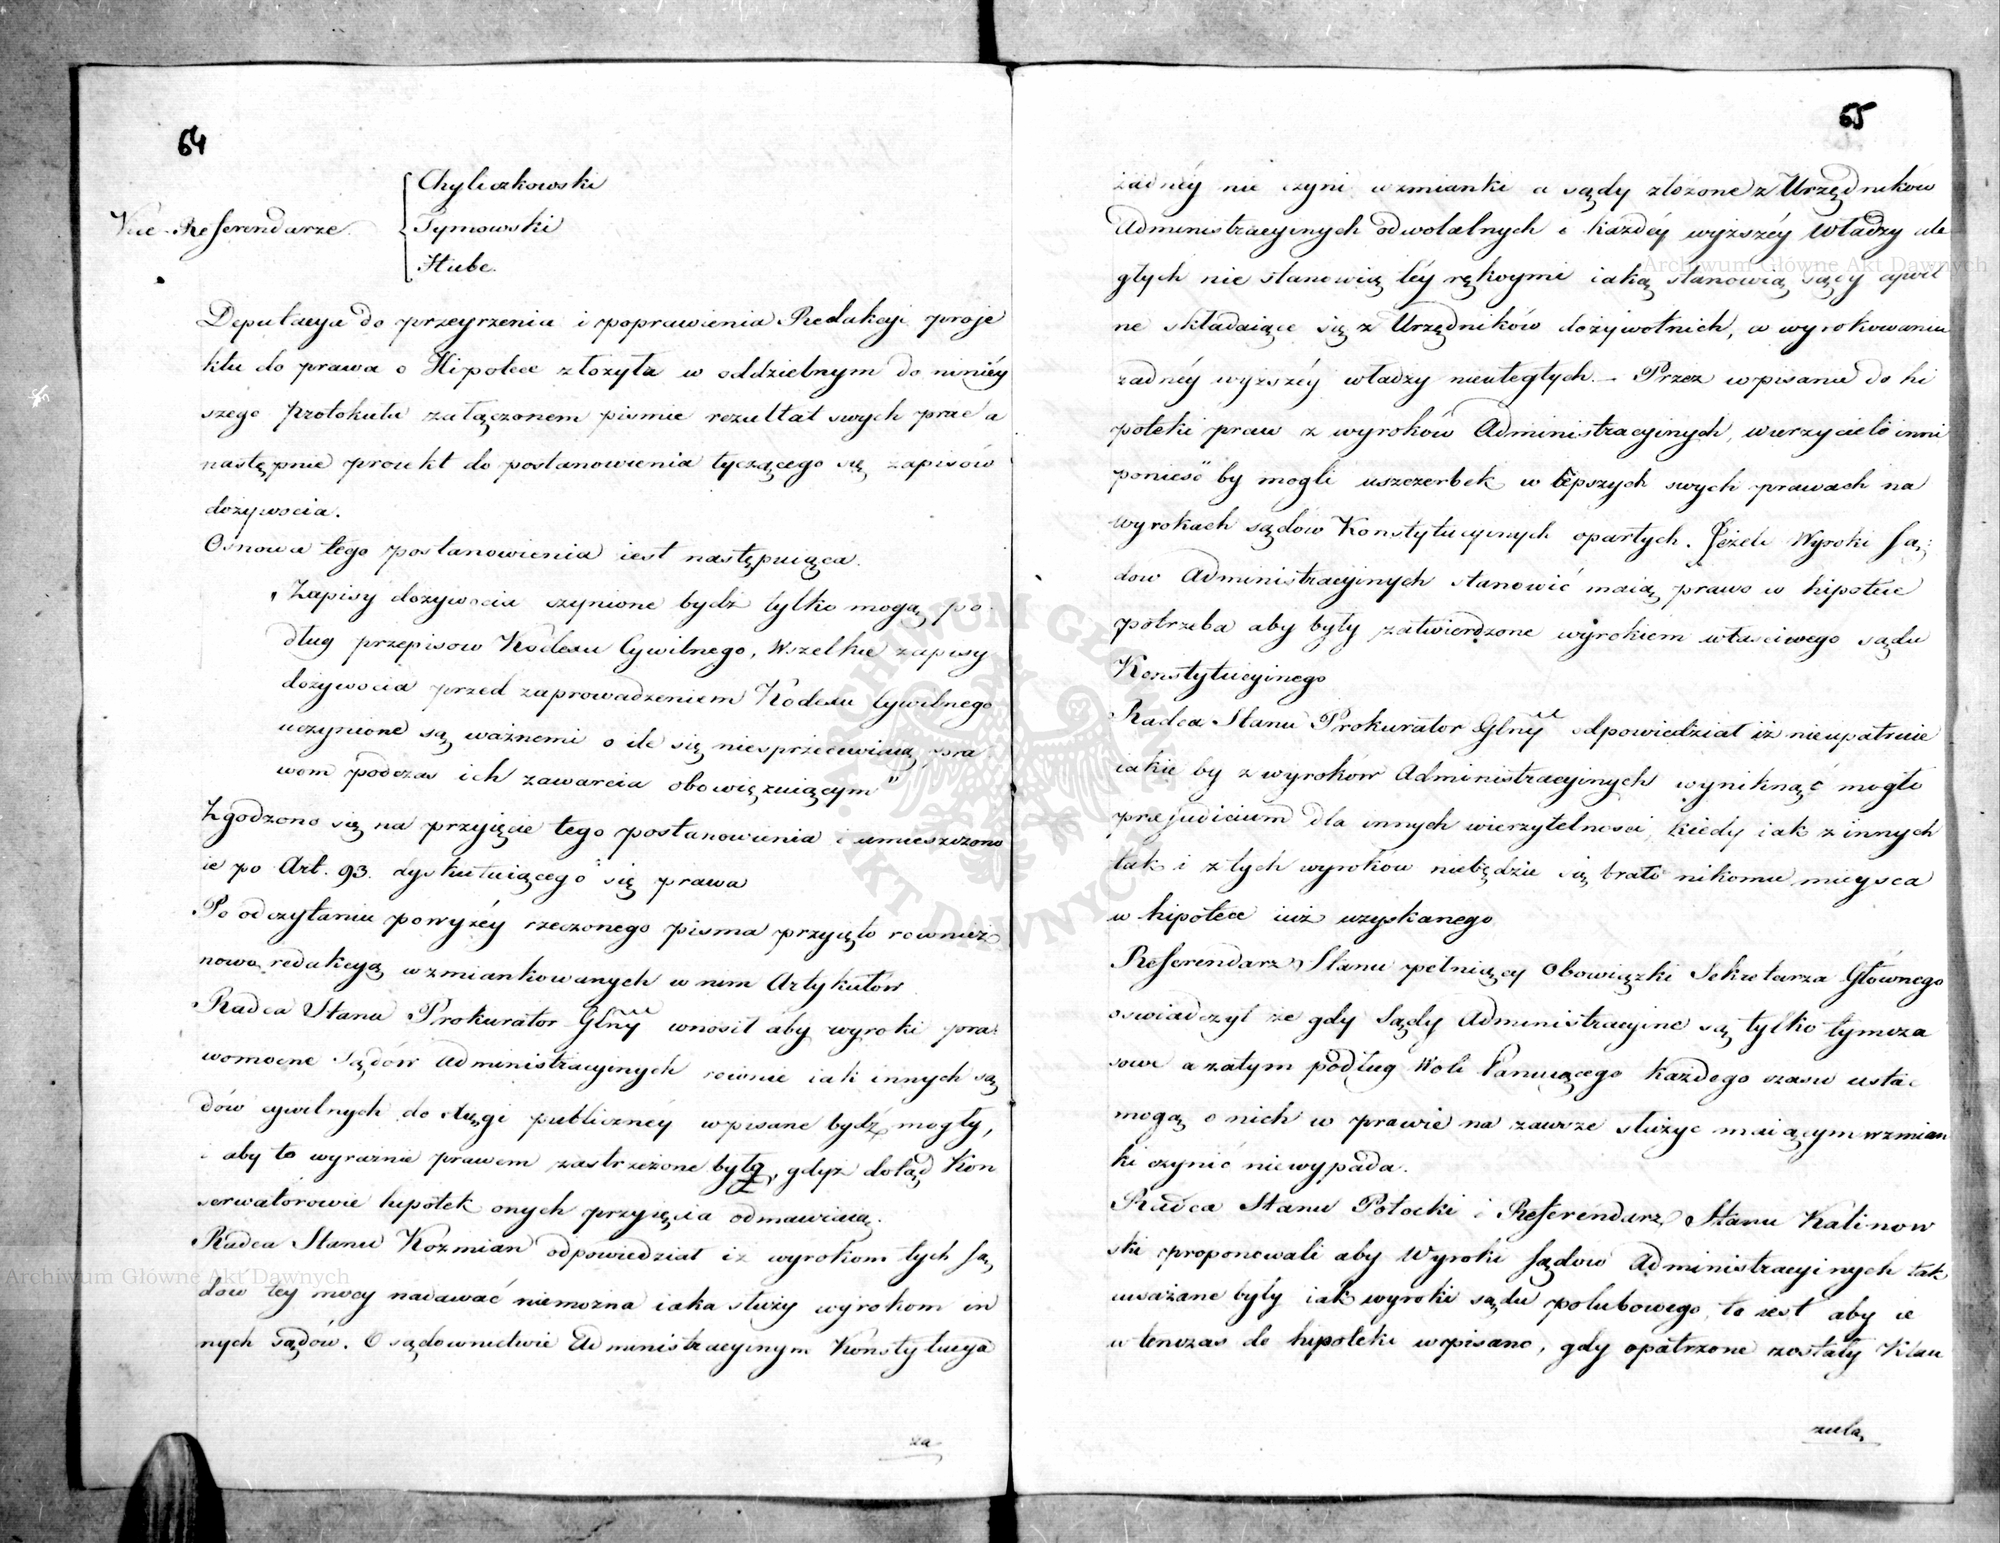 64
Chyliczkowski
Vice-Referendarze. Tymowski
Hube.
Deputacya do przeyrzenia i poprawienia Redakcyi proje
ktu do prawa o Hipotece złożyła w oddzielnym do niniéy
szego Protokułu załączonem pismie rezultat swych prac a
następnie proiekt do postanowienia tyczącego się zapisów
dożywocia.
Osnowa tego postanowienia iest następuiąca.
„Zapisy dożywocia czynione bydź tylko mogą po-
dług przepisow Kodexu Cywilnego, Wszelkie zapisy
dożywocia przed zaprowadzeniem Kodexu Cywilnego
uczynione są ważnemi o ile się niesprzeciwiaią pra
wom podczas ich zawarcia obowięzuiącym"
Zgodzono się na przyięcie tego postanowienia i umieszczono
ie po Art. 93. dyskutuiącego się prawa
Po odczytaniu powyżéy rzeczonego pisma przyięto rownież
nową redakcyą wzmiankowanych w nim Artykułów
Radca Stanu Prokurator Glny wnosił aby wyroki pra:
womocne Sądów Administracyinych rownie iak innych są
dów cywilnych do xięgi publicznéy wpisane bydź mogły,
i aby to wyraźnie prawem zastrzeżone było, gdyż dotąd Kon
serwatorowie hipotek onych przyięcia odmawiaią.
Radca Stanu Kozmian odpowiedział iż wyrokom tych Są
dów tey mocy nadawać niemożna iaka służy wyrokom in
nych Sądów. O sądownictwie Administracyinym Konstytucya
za
65
żadnéy nie czyni wzmianki a sądy złożone z Urzędników
Administracyinych odwołalnych i każdéy wyższéy Władzy ule
głych nie stanowią téy rękoymi iaką stanowią sądy cywil
ne składaiące się z Urzędników dożywotnich, w wyrokowaniu
żadnéy wyższéy władzy nieuległych. – Przez wpisanie do hi
poteki praw z wyroków Administracyinych, wierzyciele inni
ponieść by mogli uszczerbek w lepszych swych prawach na
wyrokach sądów Konstytucyinych opartych. Jeżeli Wyroki Są:
dow Administracyinych stanowić maią prawo w hipotece
potrzeba aby były zatwierdzone wyrokiem właściwego sądu
Konstytucyinego
Radca Stanu Prokurator Glny odpowiedział iż nieupatruie
iakie by z wyroków Administracyinych wyniknąć mogło
præjudicium dla innych wierzytelnosci, kiedy iak z innych
tak i z tych wyrokow niebędzie się brało nikomu mieysca
w hipotece iuż uzyskanego
Referendarz Stanu pełniący Obowiązki Sekretarza Głównego
oswiadczył że gdy Sądy Administracyine są tylko tymcza
sowe a zatym podług Woli Panuiącego każdego czasu ustać
mogą o nich w prawie na zawsze służyć maiącym wzmian
ki czynić niewypada.
Radca Stanu Potocki i Referendarz Stanu Kalinow
ski proponowali aby Wyroki Sądow Administracyinych tak
uważane były iak wyroki sądu polubowego, to iest aby ie
wtenczas do hipoteki wpisano, gdy opatrzone zostały Klau
zulą,
Archiwum Główne Akt Dawnych
Archiwum Główne Akt Dawnych
ARCHIWUM GŁÓWNE AKT DAWNYCH